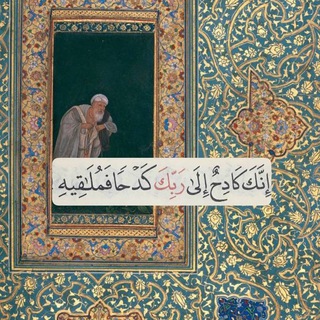 إِنَّكَ كَادِحٌ إِلَىٰ رَبِّكَ كَدْحًا فَمُلَٰقِيهِ